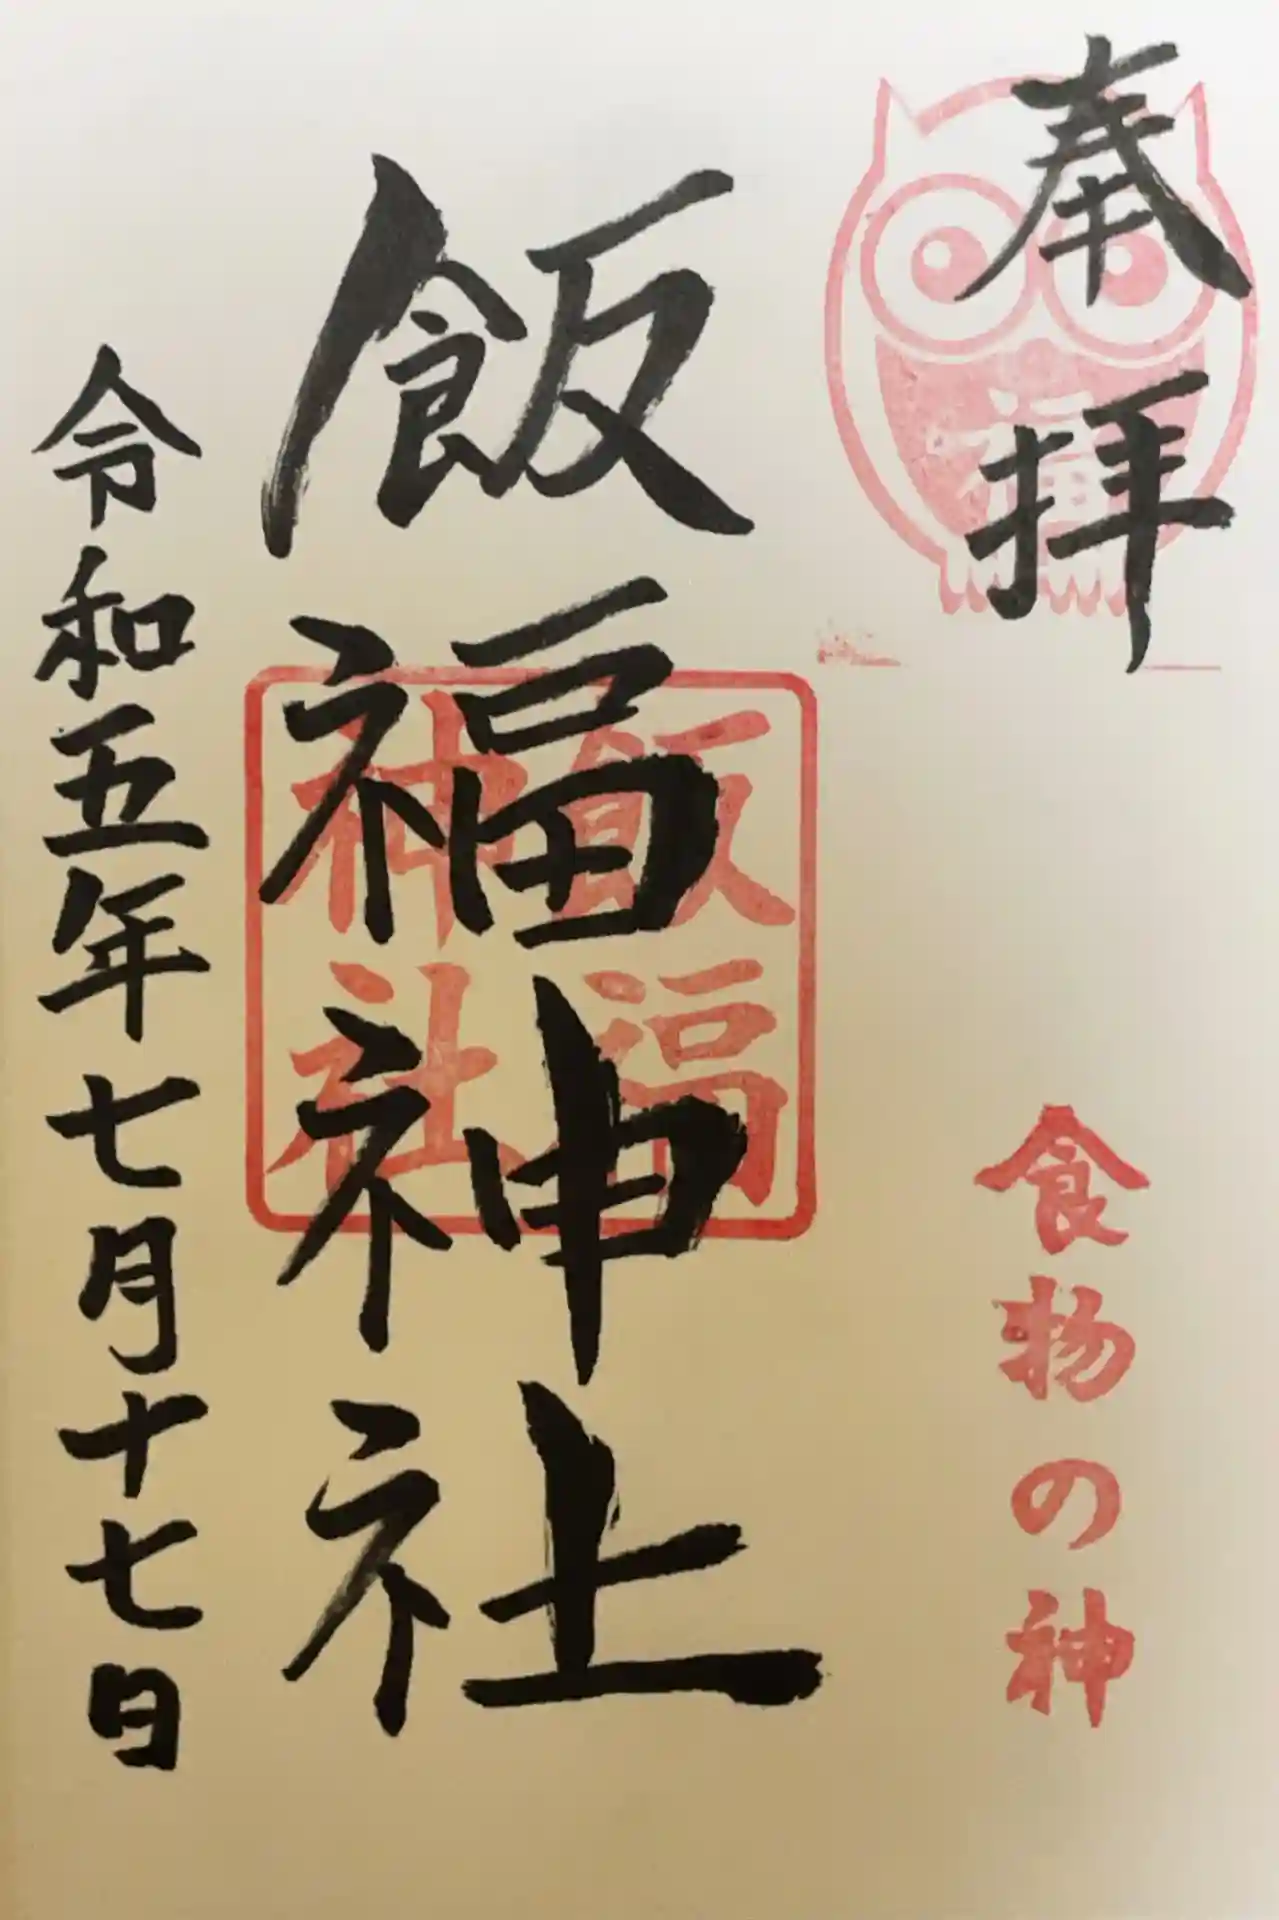 奉拝
福
食物の神
飯福神社
飯福
神社
令和五年七月十七日